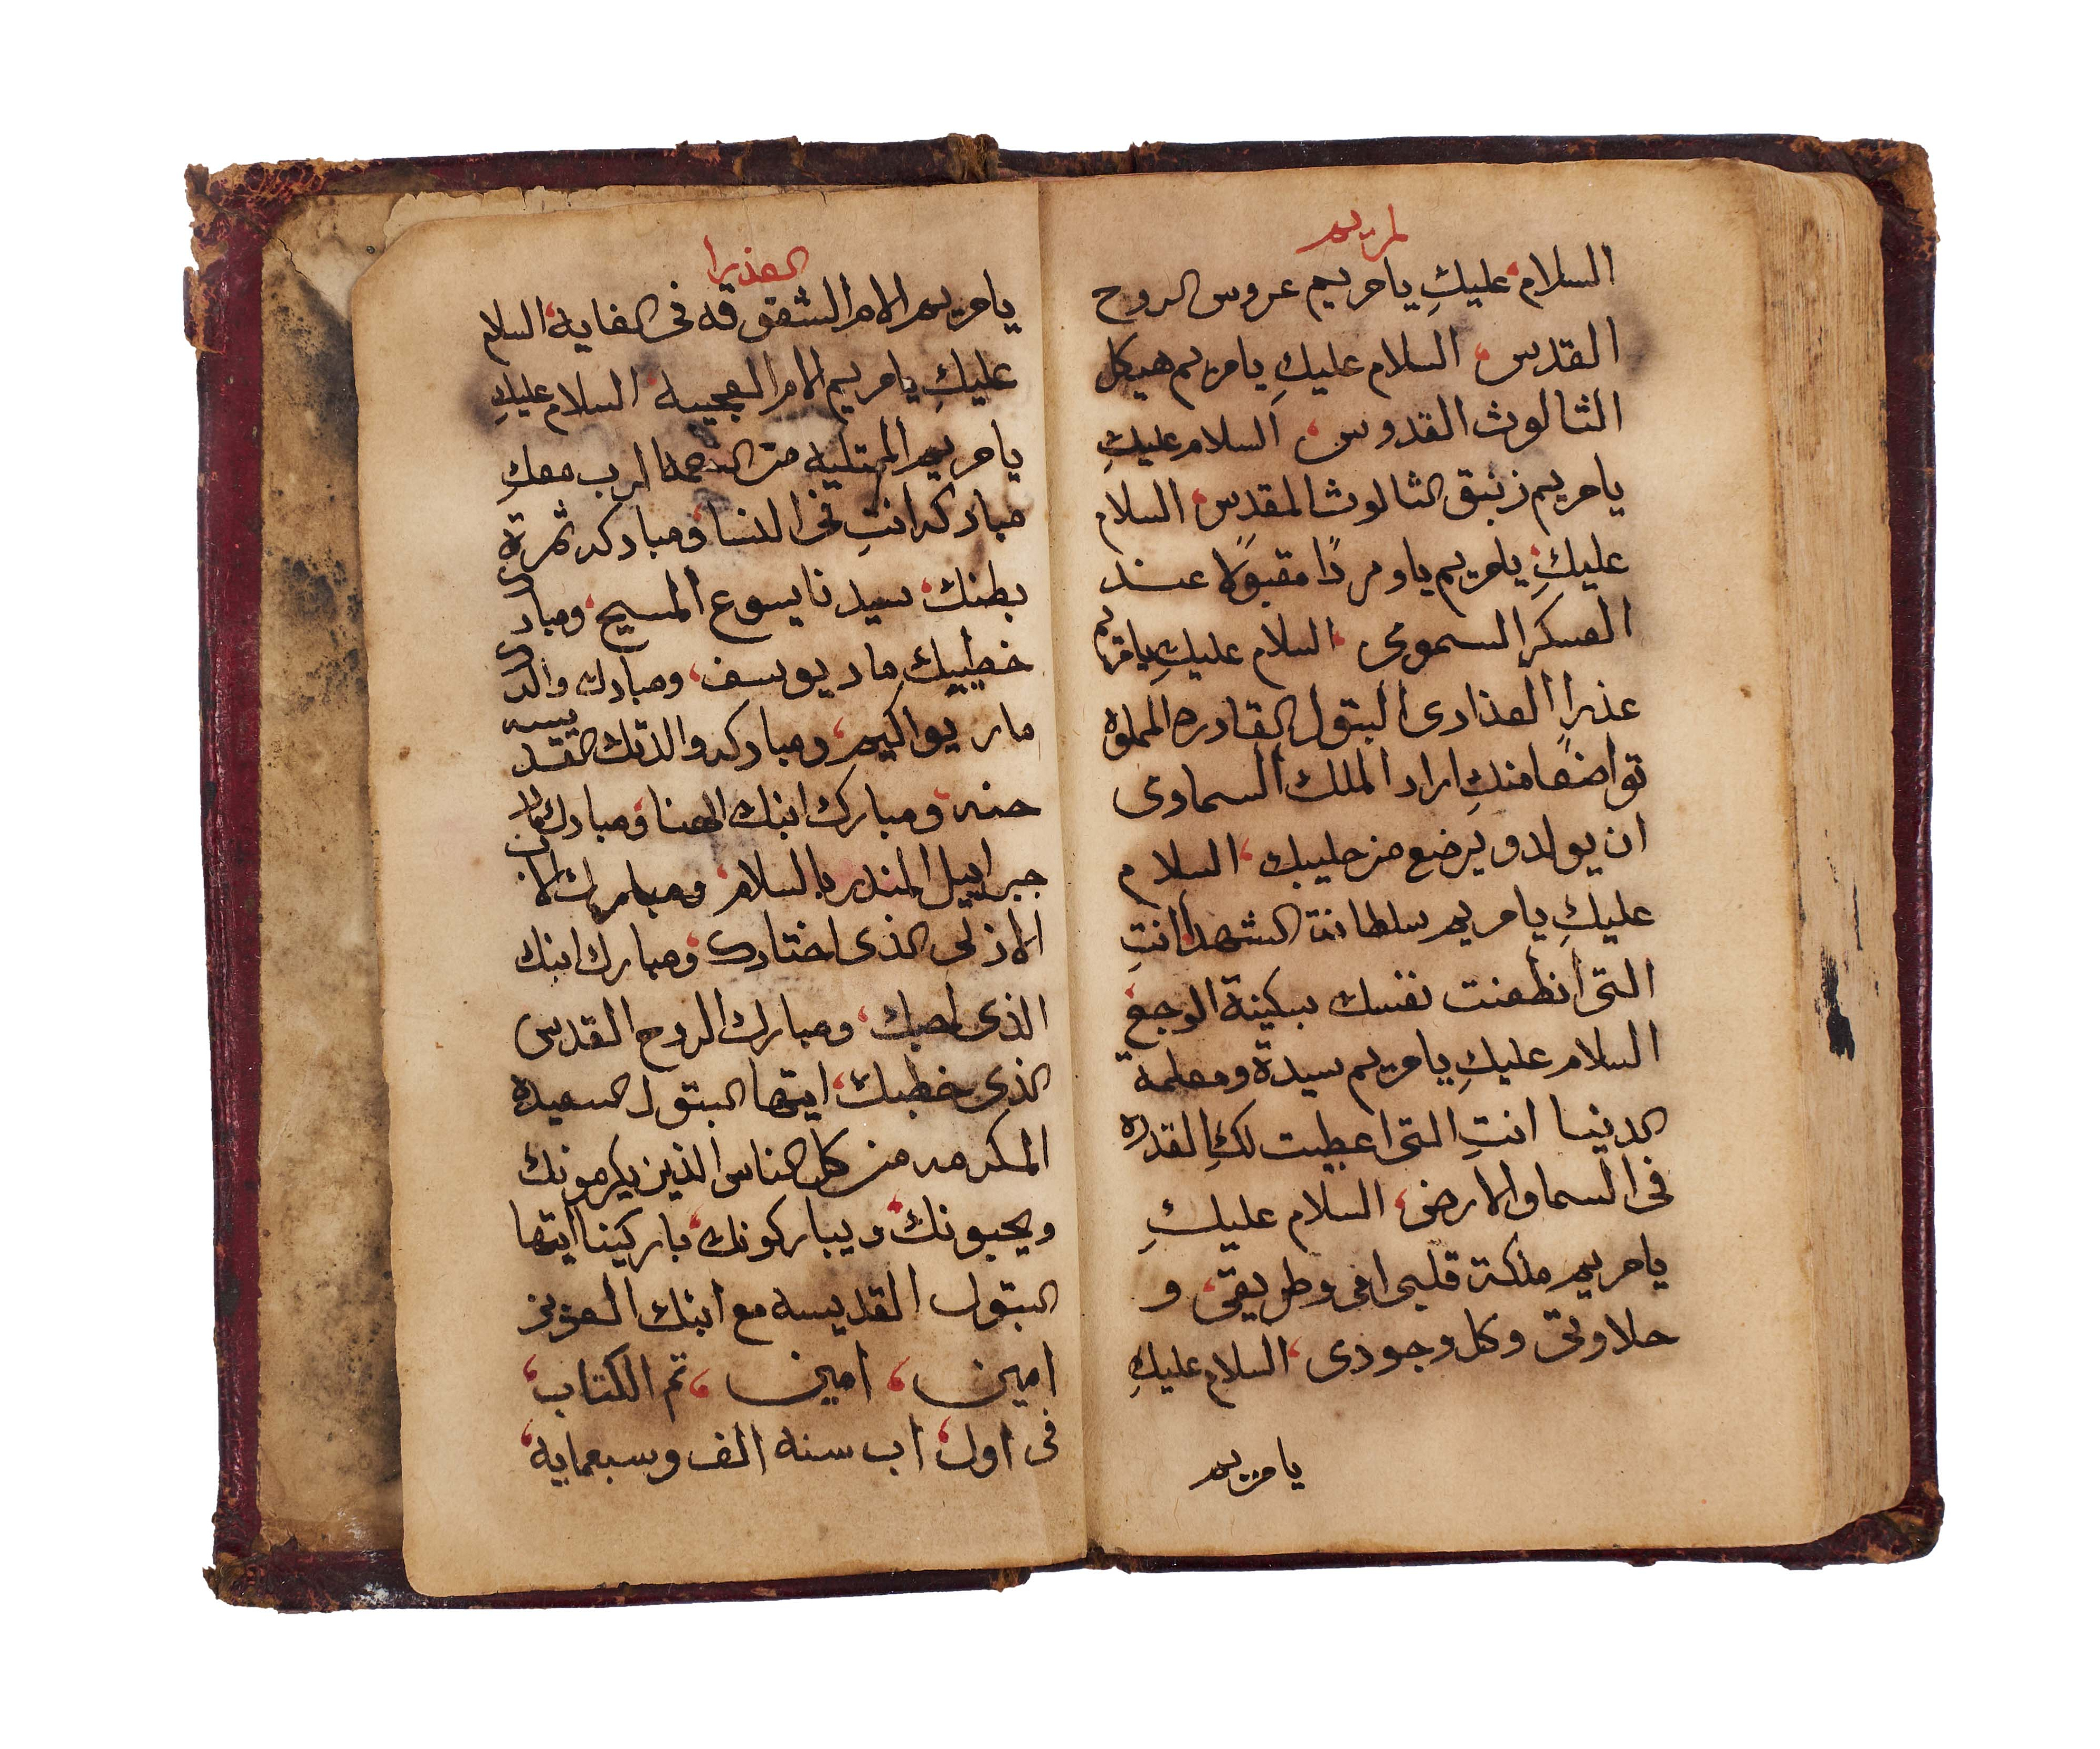 لمريم
السلام عليكِ يا مريم عروس الروح
القدس، السلام عليكِ يا مريم هيكل
الثالوث القدوس، السلام عليكِ
يا مريم زنبق الثالوث المقدس، السلام
عليكِ يا مريم يا وردًا مقبولًا عند
العسكر السموي، السلام عليكِ يا مريم
عذرا العذارى البتول القادره المملوه
تواضعًا منكِ اراد الملك السماوى
ان يولد ويرضع من حليبك، السلام
عليكِ يا مريم سلطانة الشهدا انتِ
التى انطعنت نفسك بسكينة الوجع،
السلام عليكِ يا مريم سيدة ومعلمة
الدنيا انتِ التى اعطيت لكِ القدره
فى السما والارض، السلام عليكِ
يا مريم ملكة قلبى امى وطريقى، و
حلاوتى وكل وجودى، السلام عليكِ
يا مريم
العذرا
يا مريم الام الشفوقه فى الغايه، السلام
عليكِ يا مريم الام العجيبه، السلام عليكِ
يا مريم الممتليه من النعمه الرب معكِ
مباركه انتِ فى النسا، ومباركه ثمرة
بطنك، سيدنا يسوع المسيح، ومبارك
خطيبكِ مار يوسف، ومبارك والدك
مار يواكيم، ومباركه والدتك القديسه
حنه، ومبارك ابنك الهنا، ومبارك الملاك
جبراييل المنذر بالسلام، ومبارك الاب
الازلى الذى اختارك، ومبارك ابنك
الذى احبك، ومبارك الروح القدس
الذى خطبك، ايتها البتول السعيده
المكرمه من كل الناس الذين يكرمونك
ويحبونك، ويباركونك، باركينا ايتها
البتول القديسه مع ابنك العزيز
امين، امين، تم الكتاب،
فى اول، اب سنه الف وسبعمايه،